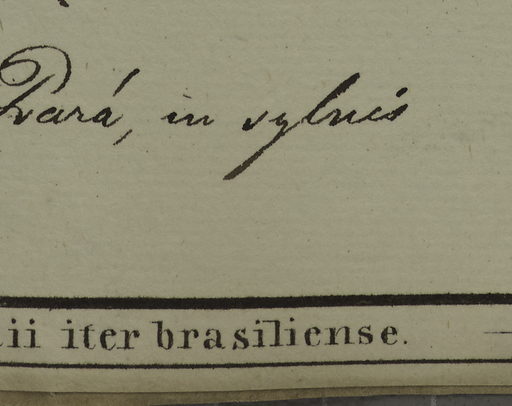 Pará, in sylvis
ii iter brasiliense.